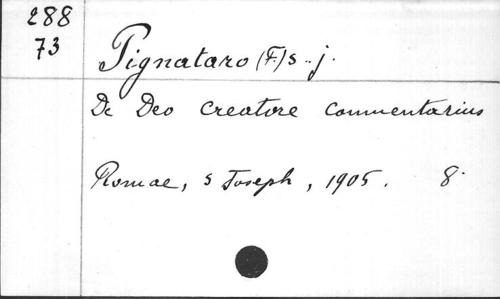 288
73
Pignataro (F.) s. j.
De Deo creatore commentarius
Romae, S Joseph, 1905. 8.